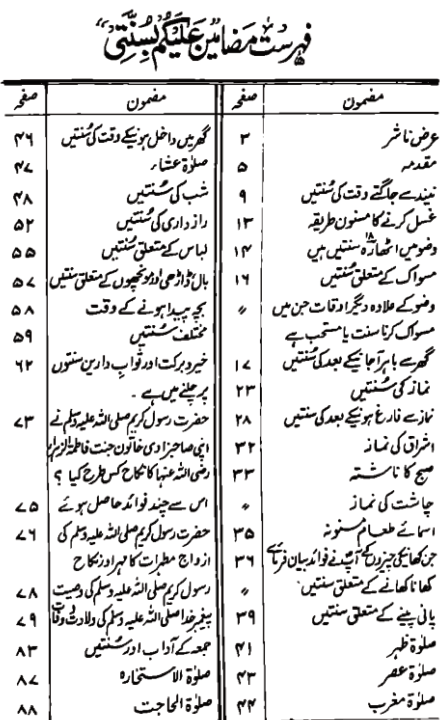 فہرست مضامین "علیکم بسنتی"
مضمون صفحہ
عرض ناشر ۳
مقدمہ ۵
نیند سے جاگتے وقت کی سُنتیں ۹
غسل کرنے کا مسنون طریقہ ۱۳
وضو میں اٹھارہ ۱۸ سنتیں ہیں ۱۴
مسواک کے متعلق سُنتیں ۱۶
وضو کے علاوہ دیگر اوقات جن میں 〃
مسواک کرنا سنت یا مستحب ہے
گھر سے باہر آجانیکے بعد کی سُنتیں ۱۷
نماز کی سُنتیں ۲۳
نماز سے فارغ ہونیکے بعد کی سنتیں ۲۸
اشراق کی نماز ۳۲
صبح کا ناشتہ ۳۳
چاشت کی نماز 〃
اسمائے طعام مسنونہ ۳۵
جن کھانیکی چیزوں کے آپؐ نے فوائد بیان فرمائے ۳۶
کھانا کھانے کے متعلق سنتیں 〃
پانی پینے کے متعلق سنتیں ۳۹
صلوٰۃ ظہر ۴۱
صلوٰۃ عصر ۴۳
صلوٰۃ مغرب ۴۴
مضمون صفحہ
گھر میں داخل ہونیکے وقت کی سُنتیں ۴۶
صلوٰۃ عشاء ۴۷
شب کی سُنتیں ۴۸
رازداری کی سُنتیں ۵۲
لباس کے متعلق سُنتیں ۵۵
بال ڈاڑھی اور مونچھوں کے متعلق سنتیں ۵۷
بچہ پیدا ہونے کے وقت ۵۸
مختلف سُنتیں ۵۹
خیر و برکت اور ثوابِ دارین سنتوں ۶۲
پر چلنے میں ہے ۔
حضرت رسول کریم صلی اللہ علیہ وسلم نے ۷۳
اپنی صاحبزادی خاتون جنت فاطمۃ الزہراء
رضی اللہ عنہا کا نکاح کس طرح کیا ؟
اس سے چند فوائد حاصل ہوئے ۷۵
حضرت رسول کریم صلی اللہ علیہ وسلم کی ۷۶
ازواج مطہرات کا مہر اور نکاح
رسول کریم صلی اللہ علیہ وسلم کی وصیت ۷۸
پیغمبر خدا صلی اللہ علیہ وسلم کی ولادت و وفات ۷۹
جمعہ کے آداب اور سُنتیں ۸۳
صلوٰۃ الاستخارہ ۸۷
صلوٰۃ الحاجت ۸۸